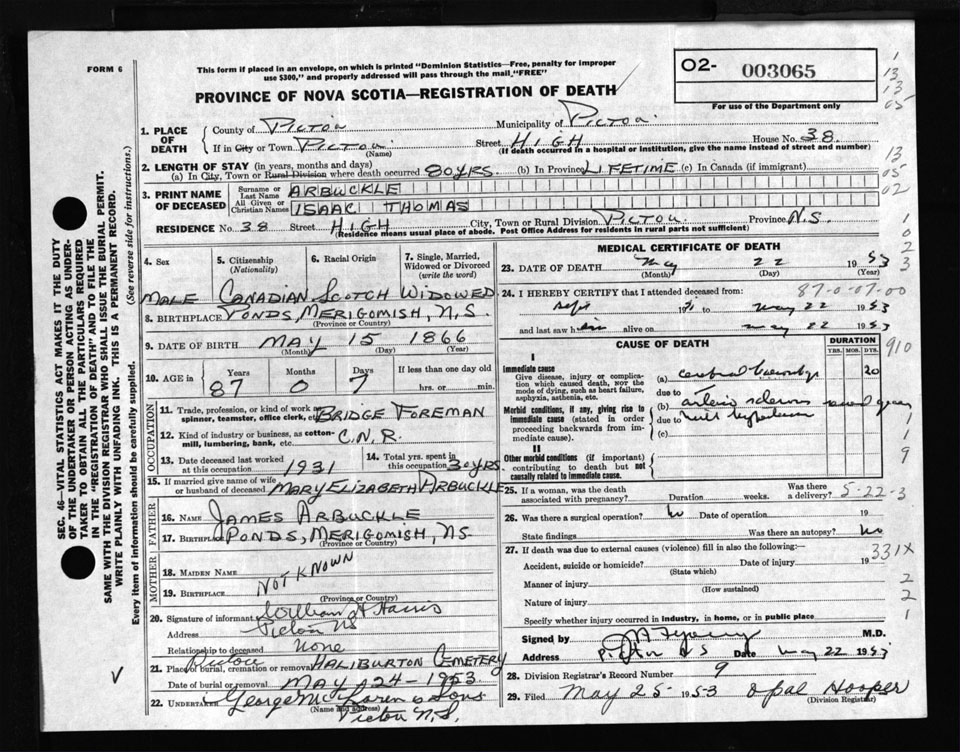 FORM 6
This form if placed in an envelope, on which is printed "Dominion Statistics—Free, penalty for improper
use $300," and properly addressed will pass through the mail "FREE"
PROVINCE OF NOVA SCOTIA—REGISTRATION OF DEATH
O2- 003065
For use of the Department only
1
13
13
05
13
05
02
1
0
2
3
SEC. 46—VITAL STATISTICS ACT MAKES IT THE DUTY
OF THE UNDERTAKER OR PERSON ACTING AS UNDER-
TAKER TO OBTAIN ALL THE PARTICULARS REQUIRED
IN THE "REGISTRATION OF DEATH" AND TO FILE THE
SAME WITH THE DIVISION REGISTRAR WHO SHALL ISSUE THE BURIAL PERMIT.
WRITE PLAINLY WITH UNFADING INK. THIS IS A PERMANENT RECORD.
(See reverse side for instructions.)
Every item of information should be carefully supplied.
1. PLACE OF DEATH
County of Pictou Municipality of Pictou
If in City or Town Pictou Street HIGH House No. 38.
(Name) (If death occurred in a hospital or institution, give the name instead of street and number)
2. LENGTH OF STAY (in years, months and days)
(a) In City, Town or Rural Division where death occurred 80yrs. (b) In Province LIFETIME (c) In Canada (if immigrant)
3. PRINT NAME OF DECEASED
Surname or Last Name ARBUCKLE
All Given or Christian Names ISAAC THOMAS
RESIDENCE No. 38 Street HIGH City, Town or Rural Division Pictou Province N.S.
(Residence means usual place of abode. Post Office Address for residents in rural parts not sufficient)
4. Sex 5. Citizenship (Nationality) 6. Racial Origin 7. Single, Married, Widowed or Divorced (write the word)
MALE CANADIAN SCOTCH WIDOWED
8. BIRTHPLACE PONDS, MERIGOMISH, N.S.
(Province or Country)
9. DATE OF BIRTH MAY 15 1866
(Month) (Day) (Year)
10. AGE in Years Months Days If less than one day old
87 0 7 hrs. or min.
OCCUPATION
11. Trade, profession, or kind of work as spinner, teamster, office clerk, etc. BRIDGE FOREMAN
12. Kind of industry or business, as cotton-mill, lumbering, bank, etc. C.N.R.
13. Date deceased last worked at this occupation 1931 14. Total yrs. spent in this occupation 30yrs.
15. If married give name of wife or husband of deceased MARY ELIZABETH ARBUCKLE
FATHER
16. NAME JAMES ARBUCKLE
17. BIRTHPLACE PONDS, MERIGOMISH, NS.
(Province or Country)
MOTHER
18. MAIDEN NAME
NOT KNOWN
19. BIRTHPLACE
(Province or Country)
20. Signature of informant William H Harris
Address Pictou NS
Relationship to deceased None
21. Place of burial, cremation or removal Pictou HALIBURTON CEMETERY
Date of burial or removal MAY 24-1953.
22. UNDERTAKER George McLaren & Sons
(Name and address) Pictou N.S.
MEDICAL CERTIFICATE OF DEATH
23. DATE OF DEATH May 22 1953
(Month) (Day) (Year)
24. I HEREBY CERTIFY that I attended deceased from: 87-0-07-00
Sept 1951 to May 22 1953
and last saw him alive on May 22 1953
CAUSE OF DEATH DURATION
YRS. MOS. DYS.
910
I
Immediate cause
Give disease, injury or complication which caused death, not the mode of dying, such as heart failure, asphyxia, asthenia, etc.
(a) cerebral 20
due to
Morbid conditions, if any, giving rise to immediate cause (stated in order proceeding backwards from immediate cause).
(b) arterio sclerosis several years
due to with
(c)
1
9
II
Other morbid conditions (if important) contributing to death but not causally related to immediate cause.
25. If a woman, was the death associated with pregnancy? Duration weeks. Was there a delivery? 5-22-3
26. Was there a surgical operation? No Date of operation 19
State findings Was there an autopsy? No
27. If death was due to external causes (violence) fill in also the following:—
Accident, suicide or homicide? Date of injury 19 331X
(State which)
Manner of injury 2
(How sustained)
Nature of injury 2
Specify whether injury occurred in industry, in home, or in public place 1
Signed by M.D.
Address Pictou N S Date May 22 1953
28. Division Registrar's Record Number 9
29. Filed May 25 1953 Opal Hooper
(Division Registrar)